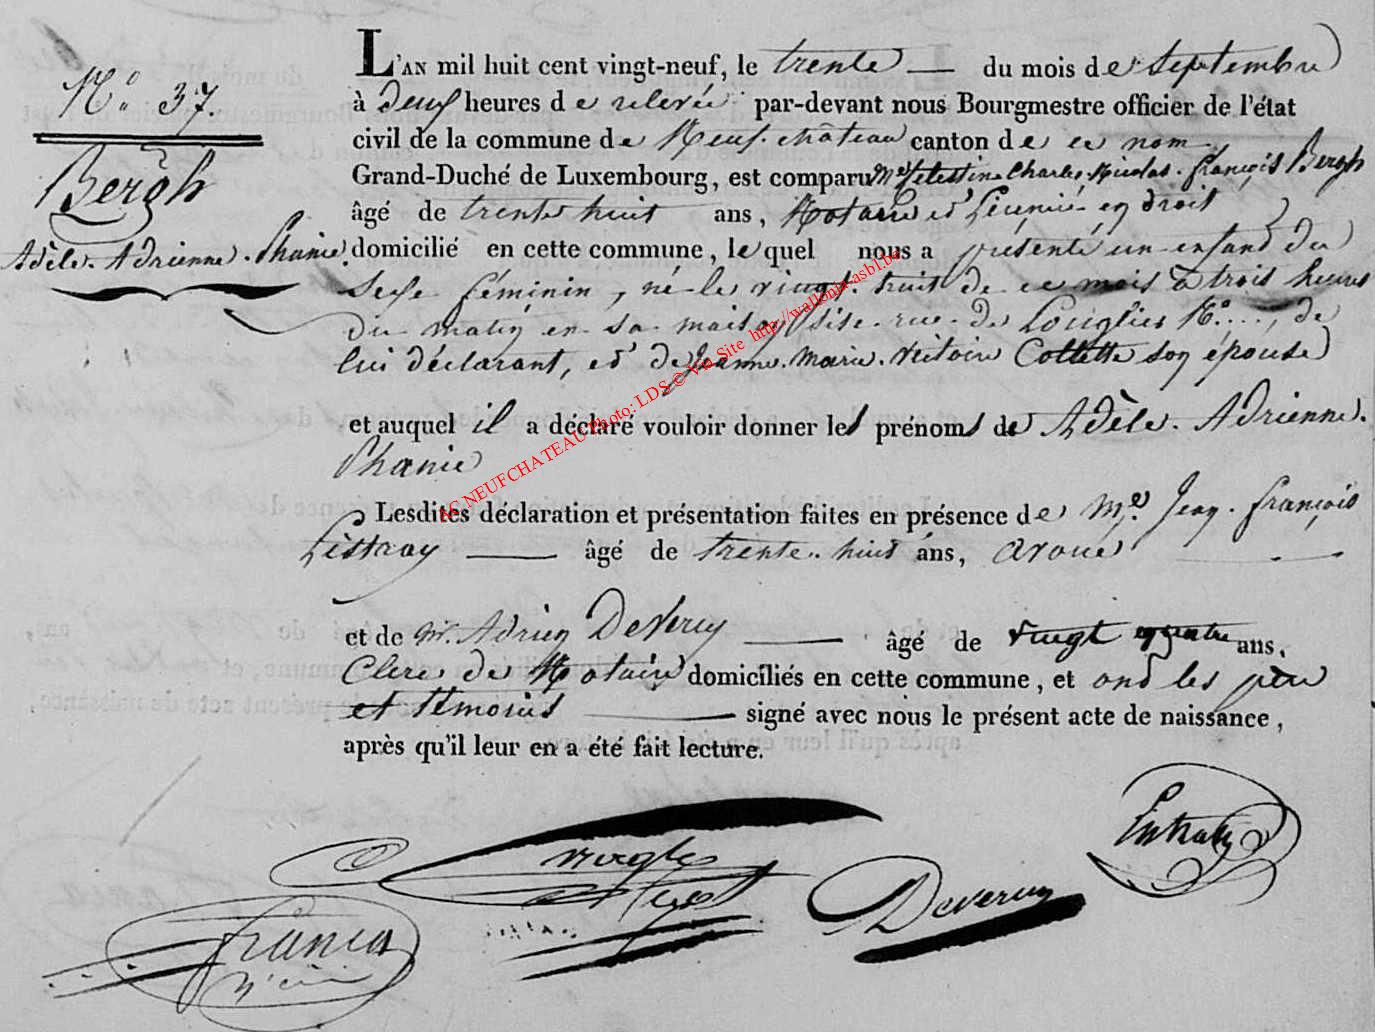 N.º 37.
Bergh
Adèle. Adrienne. Phanie.
L'AN mil huit cent vingt-neuf, le trente du mois de Septembre
à deux heures de relevée par-devant nous Bourgmestre officier de l'état
civil de la commune de Neufchâteau canton de ce nom
Grand-Duché de Luxembourg, est comparu Me Célestin Charles. Nicolas. François Bergh
âgé de trente huit ans, Notaire et Licencié en droit
domicilié en cette commune, lequel nous a présenté un enfant du
sexe féminin, né le vingt. huit de ce mois à trois heures
du matin en sa maison sise. rue de Longlier N.º ...., de
lui déclarant, et de Jeanne. Marie. Victoire Collette son épouse
et auquel il a déclaré vouloir donner les prénoms de Adèle. Adrienne.
Phanie
Lesdites déclaration et présentation faites en présence de Me. Jean. François
âgé de trente. huit ans, avoué
et de Mr. Adrien DeVercy âgé de vingt quatre ans,
Clerc de Notaire domiciliés en cette commune, et ont les père
et témoins signé avec nous le présent acte de naissance,
après qu'il leur en a été fait lecture.
AC NEUFCHATEAU Photo: LDS © Via Site http://wallonia-asbl.be
Bergh
Devercy